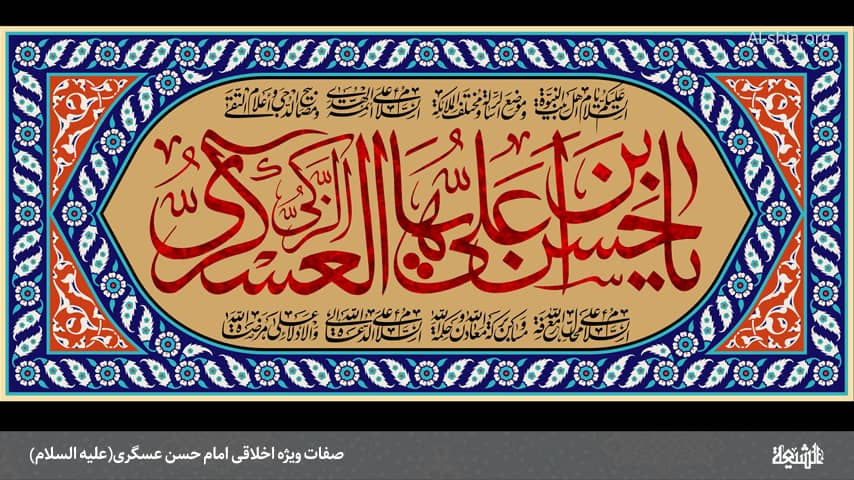 Al-shia.org
السلام علیکم یا اهل بیت النبوة و موضع الرسالة و مختلف الملائکة السلام علی ائمة الهدی و مصابیح الدجی و اعلام التقی
یا حسن بن علی ایها الزکی العسکری
السلام علی محال معرفة الله و مساکن برکة الله و معادن حکمة الله السلام علی الدعاة الی الله و الادلاء علی مرضات الله
صفات ویژه اخلاقی امام حسن عسگری(علیه السلام)
الشیعة